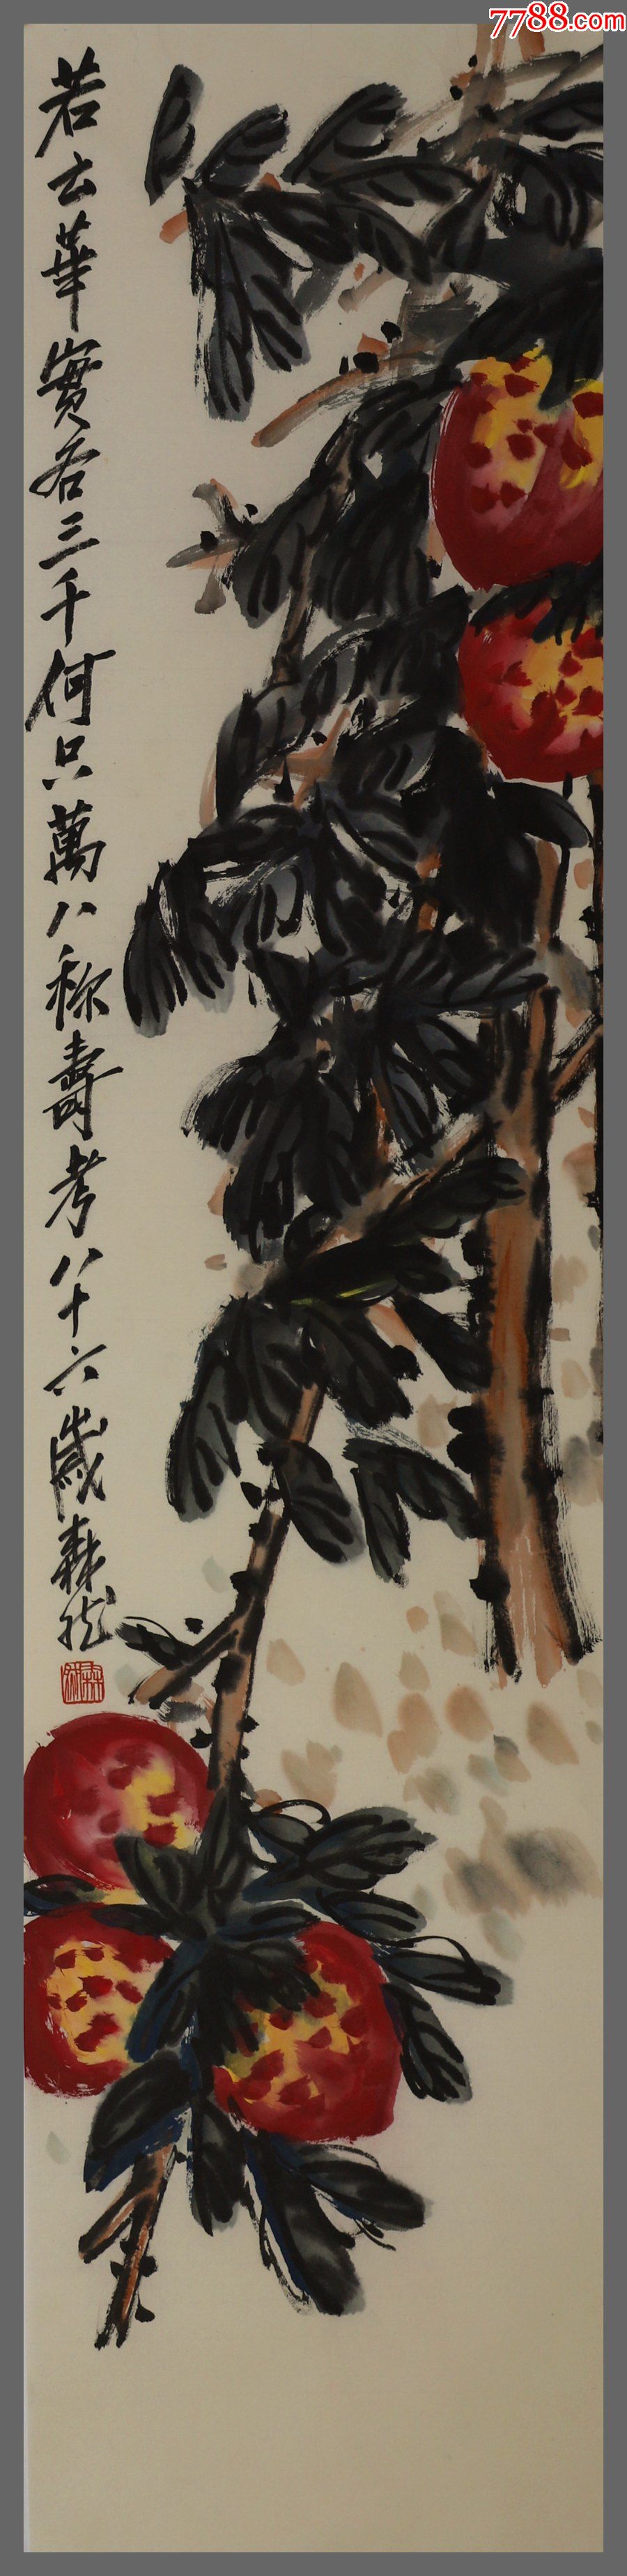 7788.com
若云華實各三千何只萬八称壽考八十六歲森然